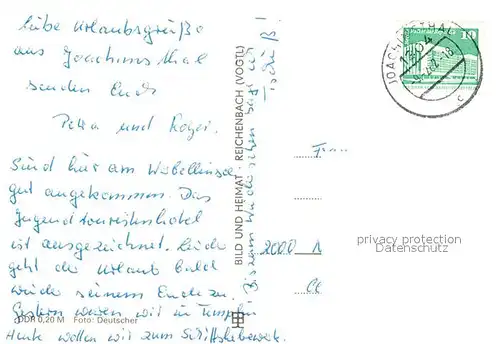 Liebe Urlaubsgrüße
aus Joachimsthal
senden Euch
Petra und Roger.
Sind hier am Werbellinsee
gut angekommen. Das
Jugendtouristenhotel
ist ausgezeichnet. Leider
geht der Urlaub bald
wieder seinem Ende zu.
Gestern waren wir in Templin
Heute wollen wir zum Schiffshebewerk.
Bis zum Wiedersehen sagt
Tschüß!
DDR 0,20 M Foto: Deutscher
BILD UND HEIMAT · REICHENBACH (VOGTL)
JOACHIMSTHAL
1304
c
10
2000
privacy protection
Datenschutz